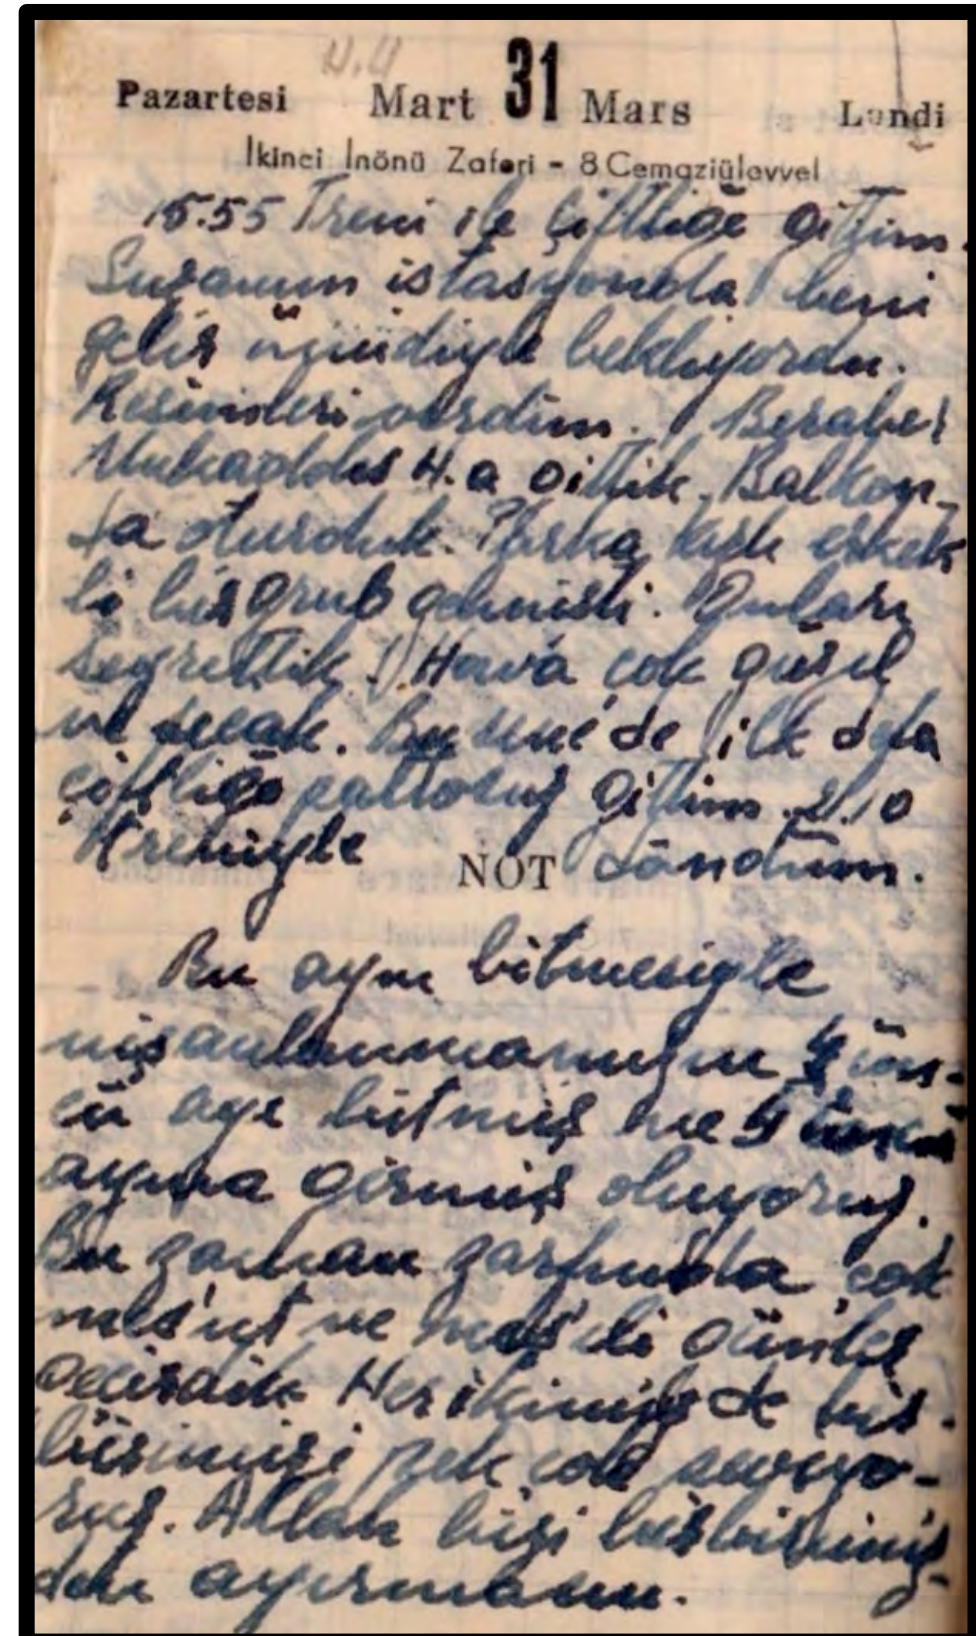 N.4
Pazartesi Mart 31 Mars Lundi
İkinci İnönü Zaferi - 8 Cemaziülevvel
15.55 Treni ile çiftliğe gittim.
Suzanım istasyonda beni
geliş ümidiyle bekliyordu.
Resimleri verdim. Beraber
Mukaddes H.a gittik. Balkon-
da oturduk. kırk erkek
li bir grub gelmişti. Onları
seyrettik. Hava çok güzel
ve sıcak. Bu sene de ilk defa
çiftliğe paltosuz gittim. 21.10
treniyle döndüm.
NOT
Bu ayın bitmesiyle
nişanlanmamızın 4 ün-
cü ayı bitmiş ve
ayına girmiş oluyoruz.
Bu zaman zarfında çok
mes'ut ve neş'eli günler
geçirdik Her ikimiz de bir-
birimizi pek çok seviyo-
ruz. Allah bizi birbirimiz-
den ayırmasın.